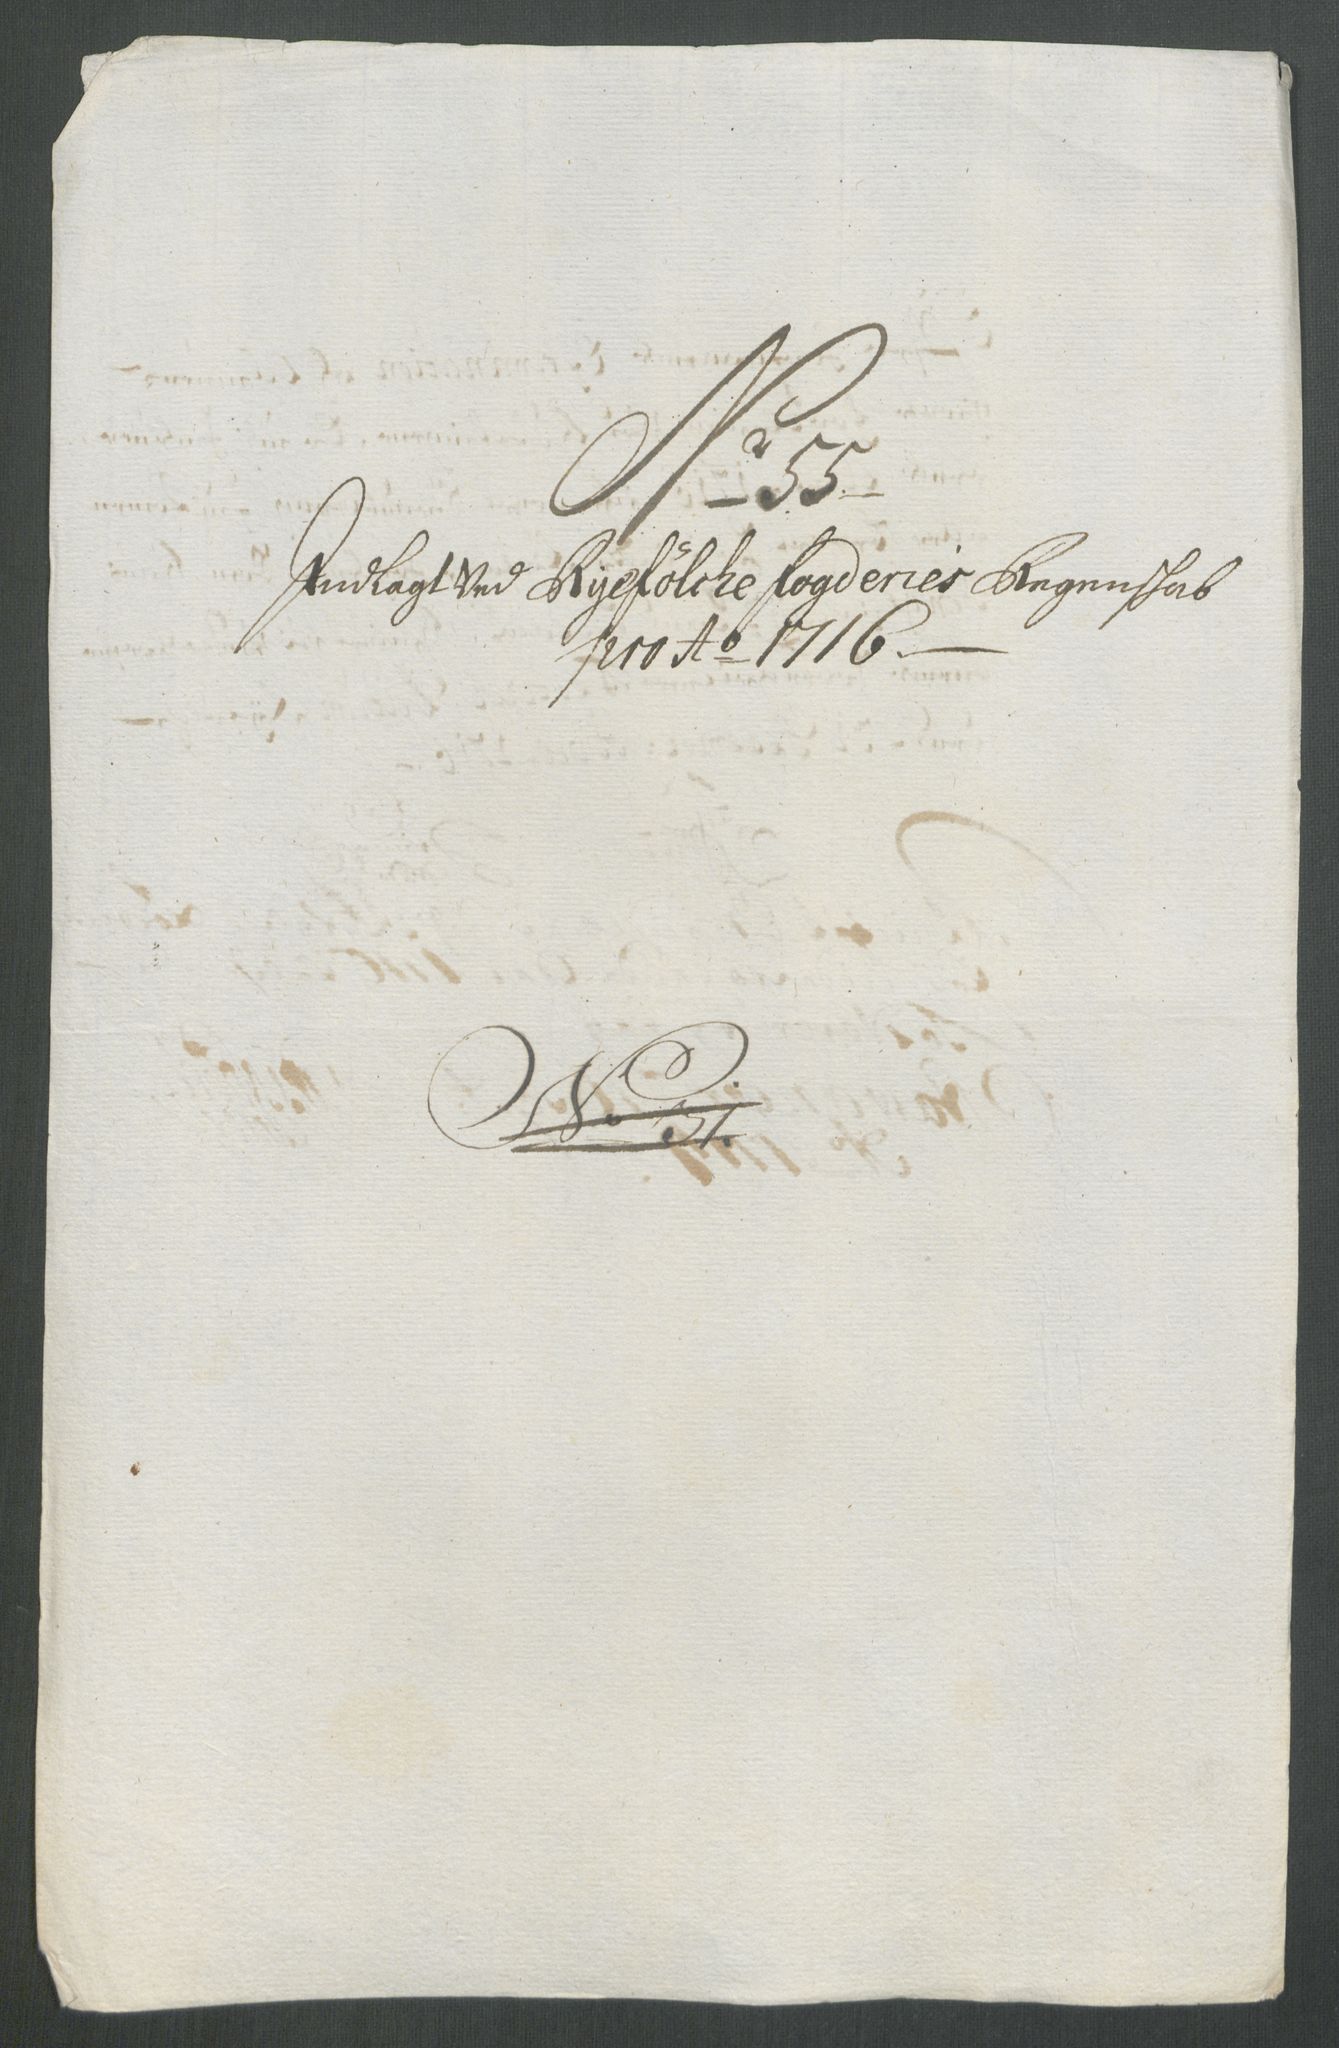 Nr 55
Indlagt Ved Ryefölcke fogderies Regenschab
pro Ao 1716.
No 31.